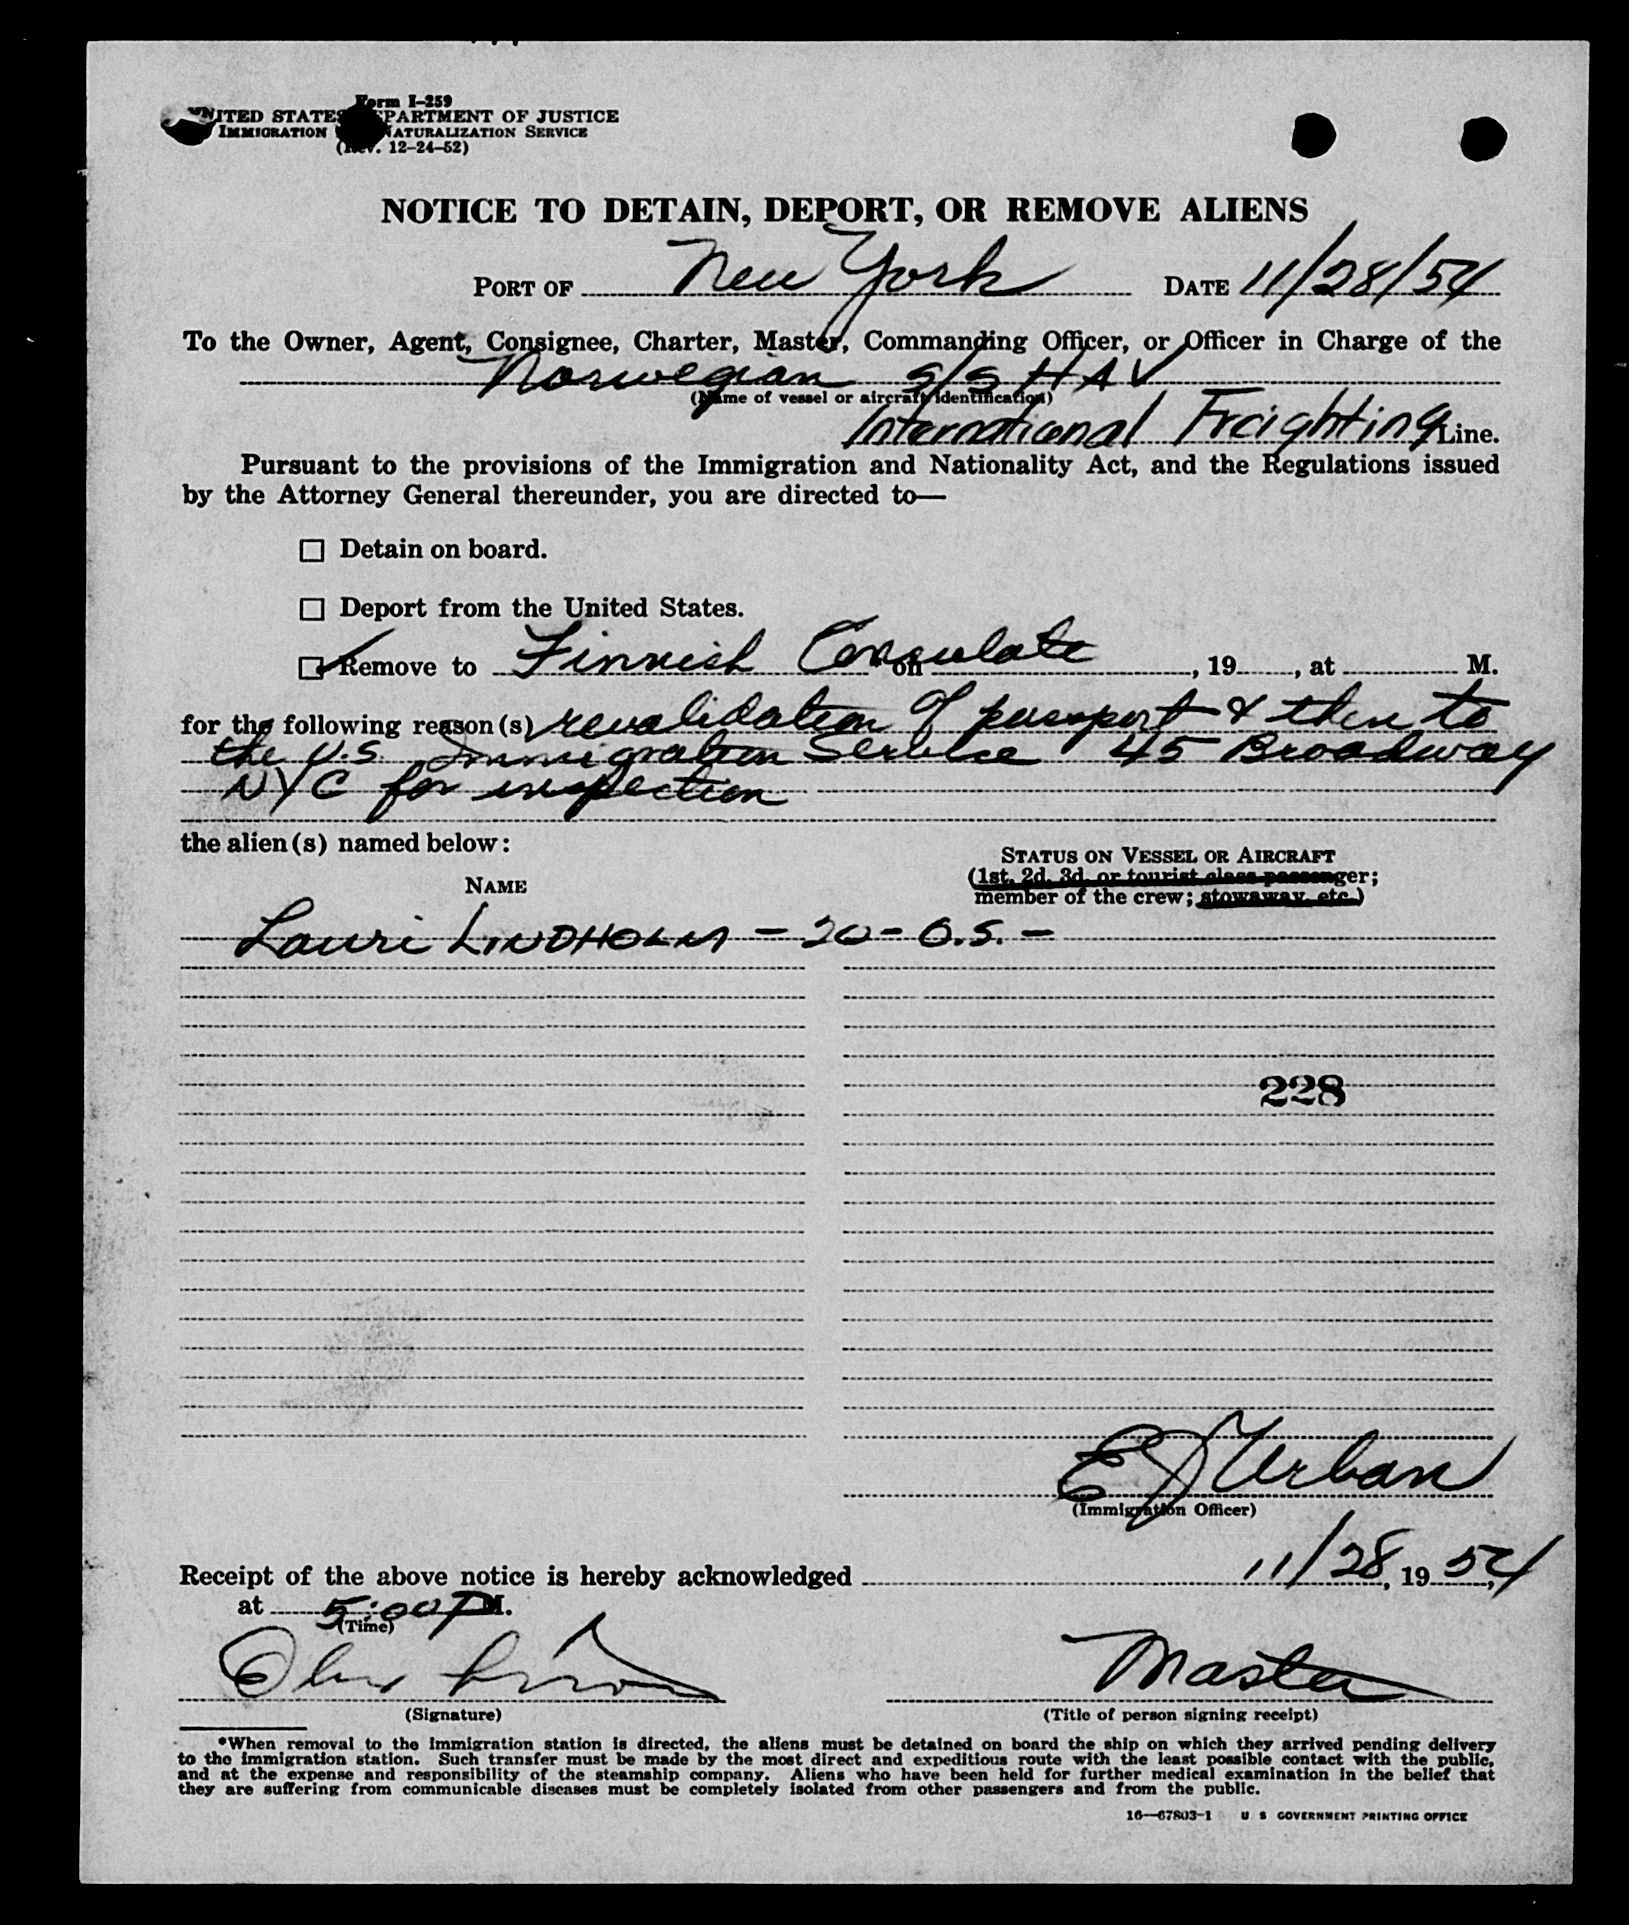 Form I-259
UNITED STATES DEPARTMENT OF JUSTICE
IMMIGRATION NATURALIZATION SERVICE
(Rev. 12-24-52)
NOTICE TO DETAIN, DEPORT, OR REMOVE ALIENS
PORT OF New York DATE 11/28/54
To the Owner, Agent, Consignee, Charter, Master, Commanding Officer, or Officer in Charge of the
Norwegian S/S HAV
(Name of vessel or aircraft identification)
International Freighting Line.
Pursuant to the provisions of the Immigration and Nationality Act, and the Regulations issued
by the Attorney General thereunder, you are directed to—
Detain on board.
Deport from the United States.
Remove to Finnish Consulate on , 19 , at M.
for the following reason(s) revalidation of passport & then to
the U.S. Immigration Service 45 Broadway
NYC for inspection
the alien(s) named below:
STATUS ON VESSEL OR AIRCRAFT
NAME
(1st, 2d, 3d, or tourist class passenger;
member of the crew; stowaway, etc.)
Lauri LINDHOLM - 20 - O.S. -
228
E J Urban
(Immigration Officer)
Receipt of the above notice is hereby acknowledged 11/28, 19 54
at 5:00 P M.
(Time)
Master
(Signature) (Title of person signing receipt)
*When removal to the immigration station is directed, the aliens must be detained on board the ship on which they arrived pending delivery
to the immigration station. Such transfer must be made by the most direct and expeditious route with the least possible contact with the public,
and at the expense and responsibility of the steamship company. Aliens who have been held for further medical examination in the belief that
they are suffering from communicable diseases must be completely isolated from other passengers and from the public.
16—67803-1 U. S. GOVERNMENT PRINTING OFFICE